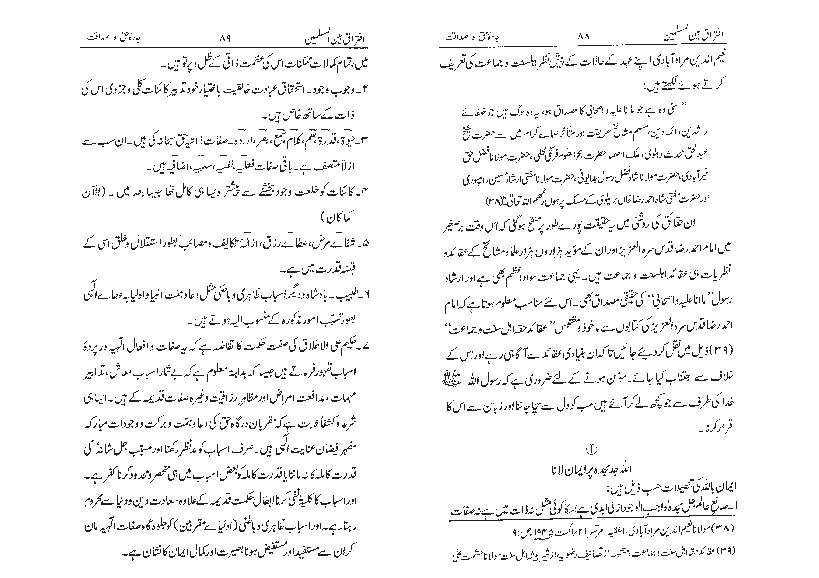 افتراق بین المسلمین ۸۸ جادۂ حق و صداقت
نعیم الدین مراد آبادی اپنے عہد کے حالات کے پیش نظر اہلسنت و جماعت کی تعریف
کرتے ہوئے لکھتے ہیں:
"سنی وہ ہے جو ما انا علیہ و اصحابی کا مصداق ہو، یہ وہ لوگ ہیں جو خلفائے
راشدین، ائمہ دین، مسلم مشائخ طریقت اور متأخر علمائے کرام میں سے حضرت شیخ
عبدالحق محدث دہلوی، ملک العلماء حضرت بحر العلوم فرنگی محلی، حضرت مولانا فضل حق
خیر آبادی، حضرت مولانا شاہ فضل رسول بدایونی، حضرت مفتی ارشاد حسین رامپوری
اور حضرت مفتی شاہ احمد رضا خاں بریلوی کے مسلک پر ہوں رحمہم اللہ تعالیٰ" (۳۸)
ان حقائق کی روشنی میں یہ حقیقت پورے طور پر منقح ہوگئی کہ اس وقت برصغیر
میں امام احمد رضا قدس سرہ العزیز اور ان کے مؤید ہزاروں ہزار علماء و مشائخ کے عقائد و
نظریات ہی عقائد اہلسنت و جماعت ہیں۔ یہی جماعت سواد اعظم بھی ہے اور ارشاد
رسول "ما انا علیہ و اصحابی" کی حقیقی مصداق بھی۔ اس لئے مناسب معلوم ہوتا ہے کہ امام
احمد رضا قدس سرہ العزیز کی کتابوں سے ماخوذ و مقتبس "عقائد حقہ اہل سنت و جماعت"
(۳۹) ذیل میں نقل کر دیئے جائیں تاکہ ان بنیادی عقائد سے آگاہی رہے اور اس کے
خلاف سے اجتناب کیا جائے۔ مومن ہونے کے لئے ضروری ہے کہ رسول اللہ ﷺ
خدا کی طرف سے جو کچھ لے کر آئے ہیں سب کو دل سے سچا جاننا اور زبان سے اس کا
اقرار کرنا۔
(۱)
اللہ جل مجدہ پر ایمان لانا
ایمان باللہ کی تفصیلات حسب ذیل ہیں:
۱۔ صانع عالم جل مجدہ واجب الوجود ازلی ابدی ہے، اس کا کوئی مثل نہ ذات میں ہے نہ صفات
(۳۸) مولانا نعیم الدین مراد آبادی، الفقیہ، امرتسر ۲۱ اگست ۱۹۴۵ء، ص: ۹
(۳۹) عقائد حقہ اہل سنت و جماعت
افتراق بین المسلمین ۸۹ جادۂ حق و صداقت
میں، تمام کمالات ممکنات اس کی عظمت ذاتی کے ظل و پرتو ہیں۔
۲۔ وجوب وجود۔ استحقاق عبادت خالقیت باختیار خود تدبیر کائنات کلی و جزوی اس کی
ذات کے ساتھ خاص ہیں۔
۳۔ حیوٰۃ، قدرۃ، علم، کلام، سمع، بصر، ارادہ۔ صفات ذاتیہ حق سبحانہ کی ہیں۔ ان سب سے
ازلاً متصف ہے۔ باقی صفات فعلیہ، نفسیہ، سلبیہ، اضافیہ ہیں۔
۴۔ کائنات کو خلعت وجود بخشنے سے پیشتر ویسا ہی کامل تھا جیسا بعد میں۔ (الآن
کما کان)
۵۔ شفائے مرض، عطائے رزق، ازالۂ تکالیف و مصائب بطور استقلال و خلق اسی کے
قبضۂ قدرت میں ہے۔
۶۔ طبیب، بادشاہ و دیگر اسباب ظاہری و باطنی مثل دعا و ہمت انبیا و اولیا بہ عطائے الٰہی
بصورت سبب امور مذکورہ کے منسوب الیہ ہوتے ہیں۔
۷۔ حکیم علی الاطلاق کی صفت حکمت کا تقاضا ہے کہ یہ صفات و افعال الٰہیہ در پردۂ
اسباب ظہور فرماتے ہیں جیسا کہ بداہۃً معلوم ہے کہ بے شمار اسباب معاش، تدابیر
مہمات، مدافعت امراض اور مظاہر رزاقیت وغیرہ صفات قدیمہ کے ہیں۔ ایسا ہی
شرعاً و کشفاً ثابت ہے کہ مقربان درگاہ حق کی دعا و ہمت و برکت و وجودات مبارکہ
مظہر فیضان عنایت الٰہی ہیں۔ صرف اسباب کو مدنظر رکھنا اور مسبب جل شانہٗ کی
قدرت کاملہ کا نہ ماننا یا قدرت کاملہ کو بعض اسباب میں ہی منحصر و محدود کرنا کفر ہے۔
اور اسباب کا کلیۃً نفی کرنا ابطال حکمت قدیمہ کے علاوہ، سعادت دین و دنیا سے محروم
رہنا ہے۔ اور اسباب ظاہری و باطنی (اولیائے مقربین) کو جلوہ گاہ صفات الٰہیہ مان
کر اُن سے مستفید اور مستفیض ہونا بصیرت اور کمال ایمان کا نشان ہے۔